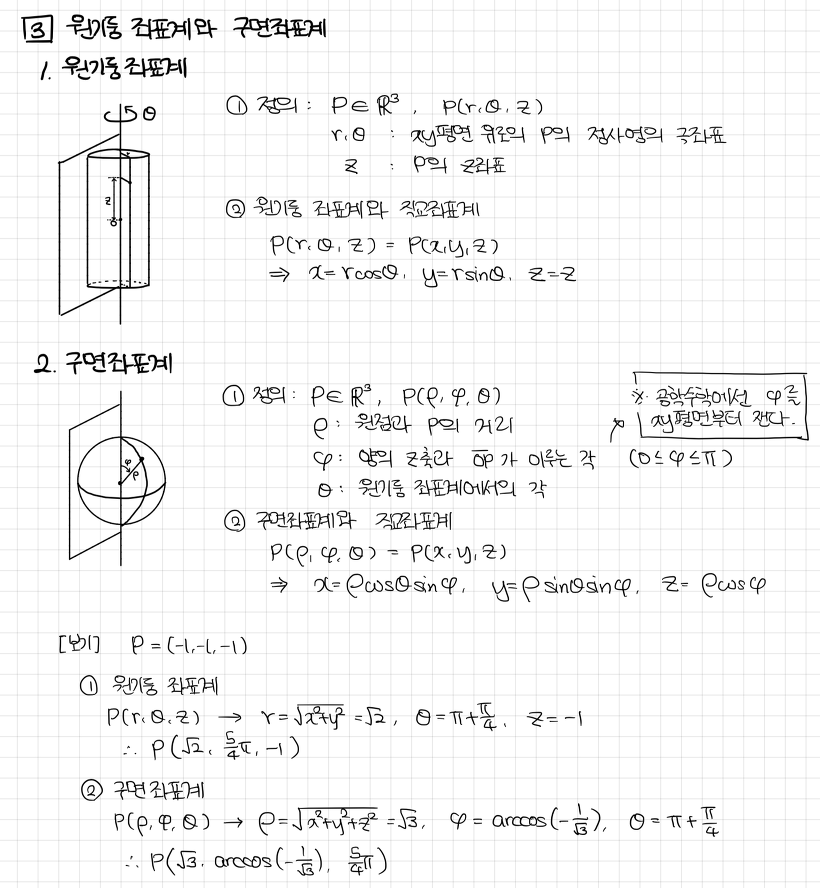 3 원기둥 좌표계와 구면좌표계
1. 원기둥좌표계
θ
z
0
① 정의 : P∈ℝ³, P(r, θ, z)
r, θ : xy평면 위로의 P의 정사영의 극좌표
z : P의 z좌표
② 원기둥 좌표계와 직교좌표계
P(r, θ, z) = P(x, y, z)
⇒ x=rcosθ, y=rsinθ, z=z
2. 구면좌표계
φ
ρ
① 정의 : P∈ℝ³, P(ρ, φ, θ)
※ 공학수학에선 φ를
xy평면부터 잰다.
ρ : 원점과 P의 거리
φ : 양의 z축과 OP가 이루는 각 (0≤φ≤π)
θ : 원기둥 좌표계에서의 각
② 구면좌표계와 직교좌표계
P(ρ, φ, θ) = P(x, y, z)
⇒ x=ρcosθsinφ, y=ρsinθsinφ, z=ρcosφ
[보기] P=(-1,-1,-1)
① 원기둥 좌표계
P(r, θ, z) → r=√(x²+y²)=√2, θ=π+π/4, z=-1
∴ P(√2, 5/4π, -1)
② 구면좌표계
P(ρ, φ, θ) → ρ=√(x²+y²+z²)=√3, φ=arccos(-1/√3), θ=π+π/4
∴ P(√3, arccos(-1/√3), 5/4π)